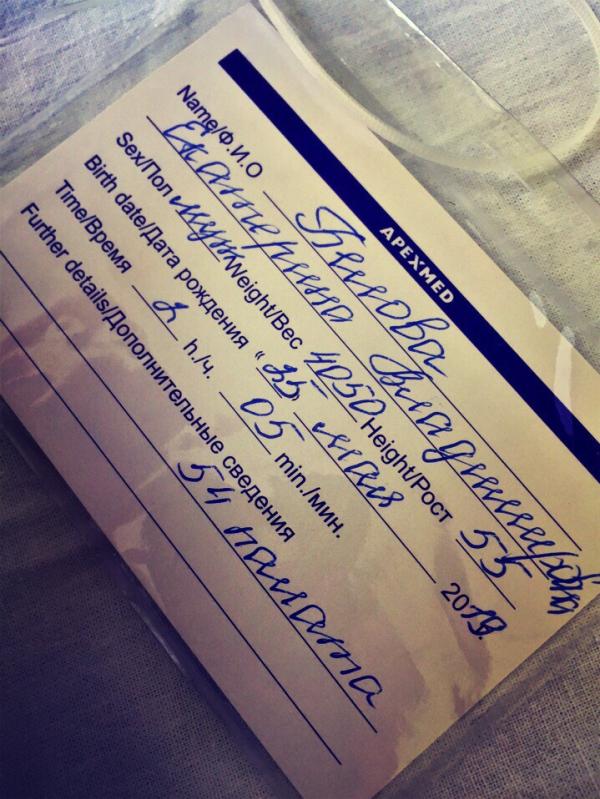 APEXMED
Name/Ф.И.О
Екатерина Владимировна
Sex/Пол муж Weight/Вес 4050 Height/Рост 55
Birth date/Дата рождения "25 мая 2013.
Time/Время 2 h./ч. 05 min./мин.
Further details/Дополнительные сведения
54 палата